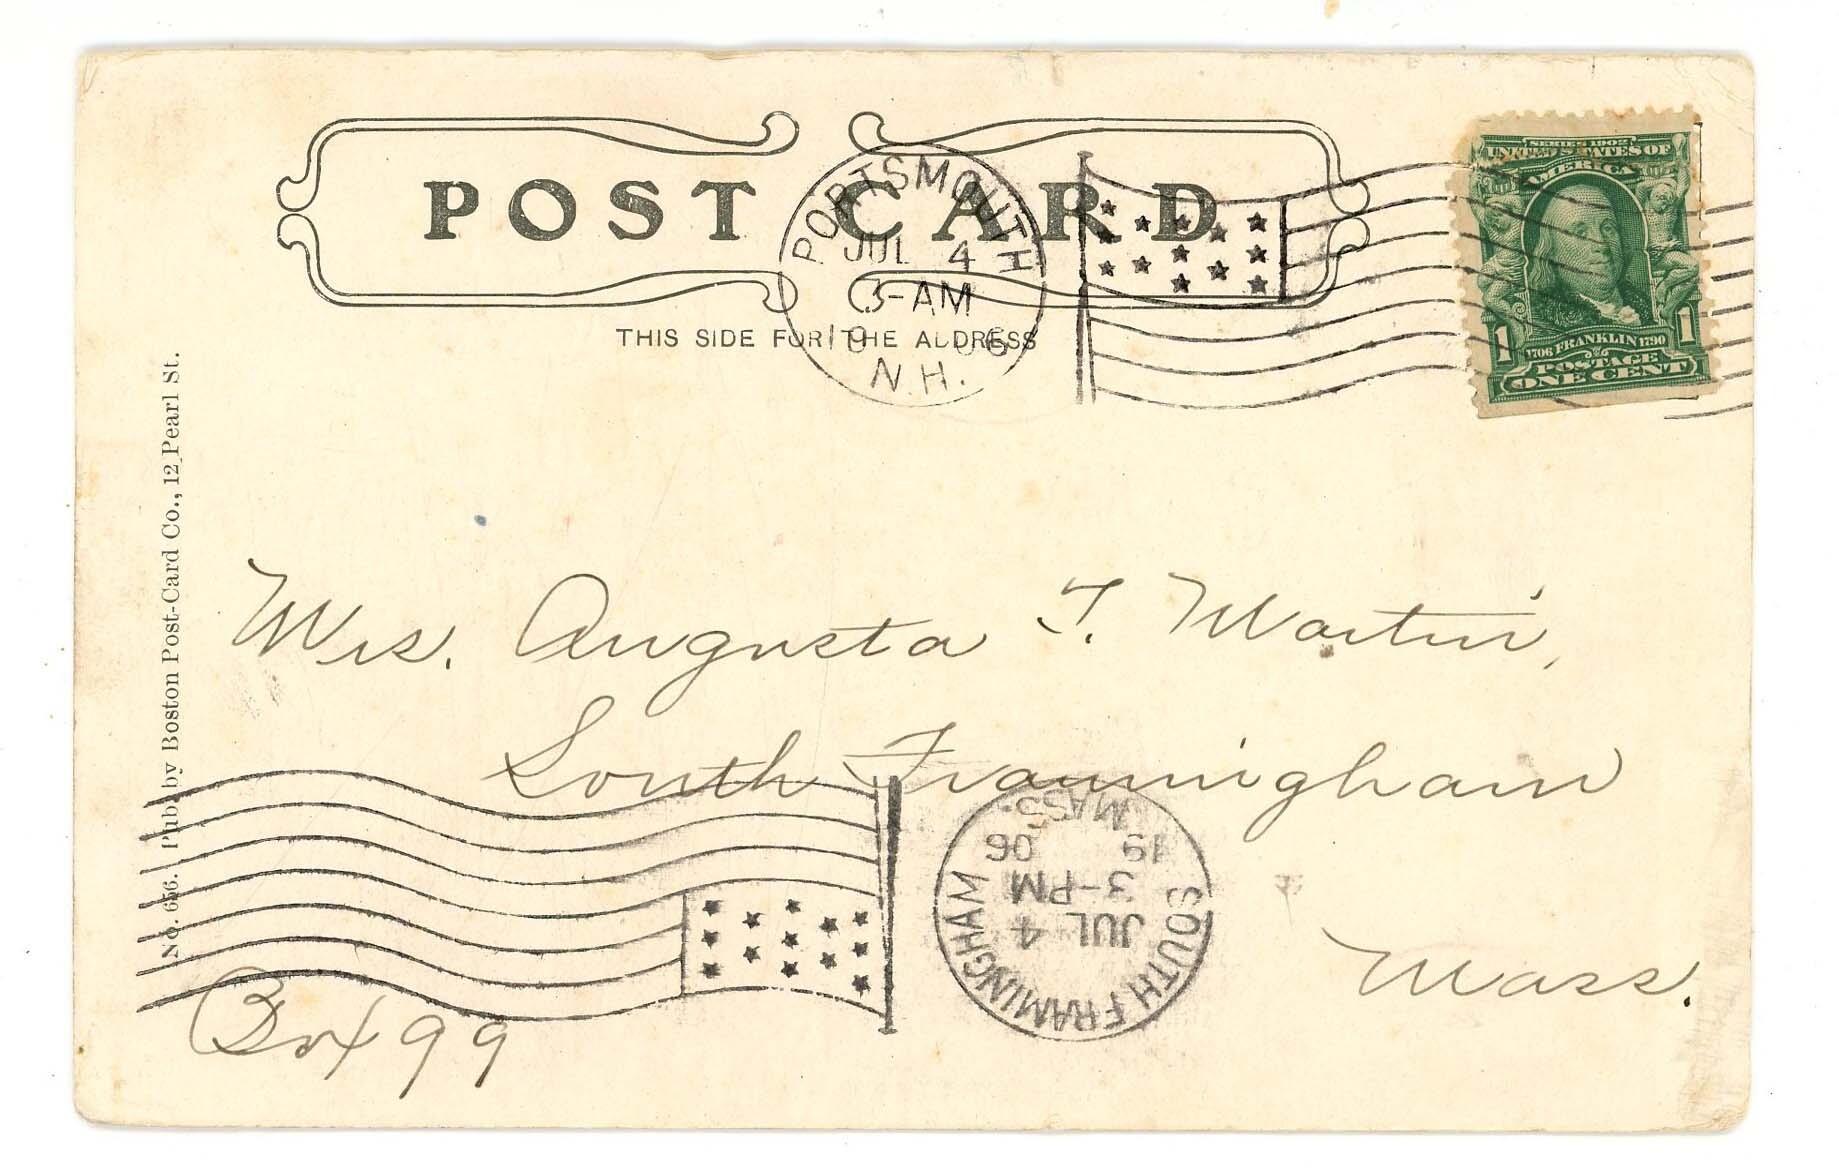 POST CARD
THIS SIDE FOR THE ADDRESS
PORTSMOUTH
JUL 4
-AM
19 06
N.H.
SERIES 1902
UNITED STATES OF
AMERICA
1706 FRANKLIN 1790
1 1
POSTAGE
ONE CENT
No. 656. Pub. by Boston Post-Card Co., 12 Pearl St.
Mrs. Augusta T. Martin,
South Framingham
Mass.
Box 99
SOUTH FRAMINGHAM
JUL 4
3-PM
19 06
MASS.